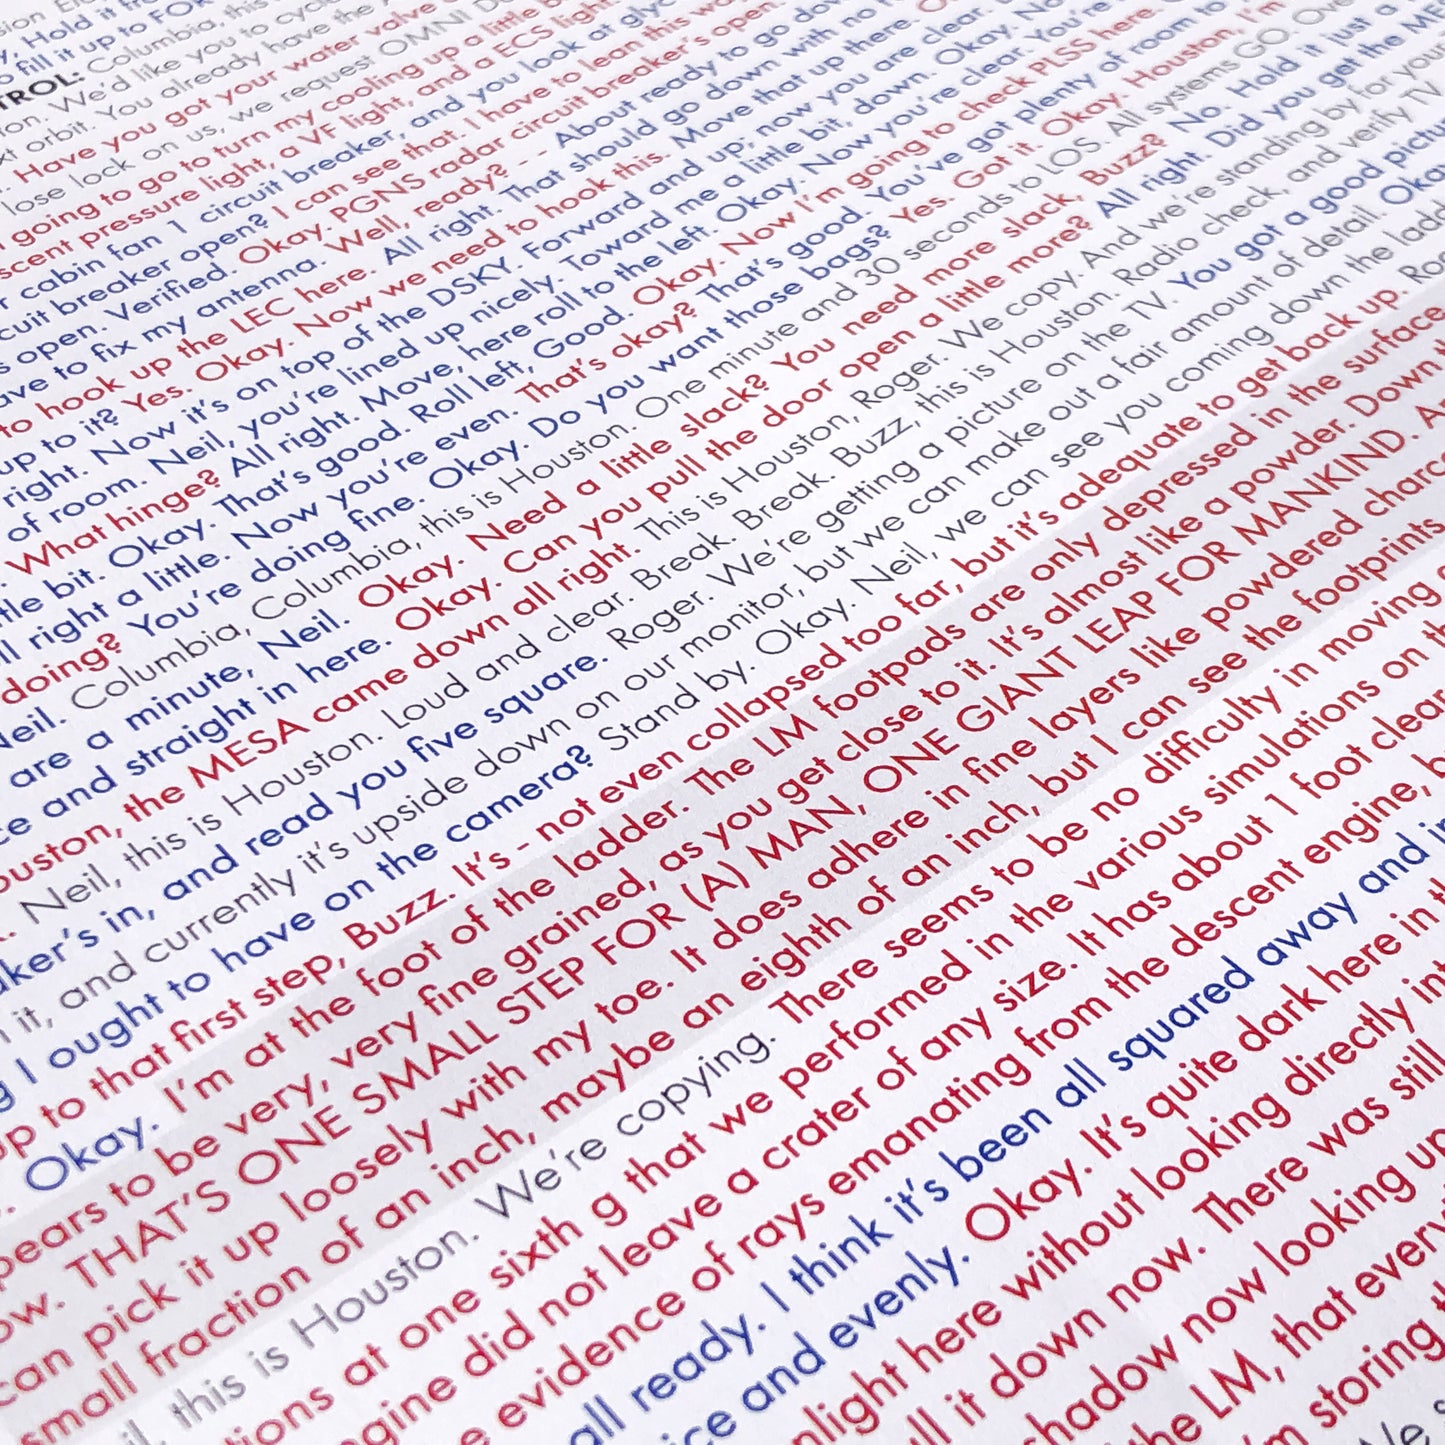 Hold it
fill it up to FOR
TROL: Columbia, this
on. We'd like you to cycl
xt orbit. You already have the
Have you got your water valve
lose lock on us, we request OMNI D
going to go to turn my cooling up a little b
scent pressure light, a VF light, and a ECS light.
r cabin fan 1 circuit breaker, and you look at glyc
cuit breaker open? I can see that. I have to lean this wa
s open. Verified. Okay. PGNS radar circuit breaker's open.
ave to fix my antenna. Well, ready? - - About ready to go dow
to hook up the LEC here. All right. That should go down with no
up to it? Yes. Okay. Now we need to hook this. Move that up there.
right. Now it's on top of the DSKY. Forward and up; now you are clear
of room. Neil, you're lined up nicely. Toward me a little bit, down. Okay. No
What hinge? All right. Move, here roll to the left. Okay. Now you're clear. You're
ttle bit. Okay. That's good. Roll left, Good. Okay. Now I'm going to check PLSS here.
ll right a little. Now you're even. That's okay? That's good. You've got plenty of room to
doing? You're doing fine. Okay. Do you want those bags? Yes. Got it. Okay. Houston, I'm
Neil. Columbia, Columbia, this is Houston. One minute and 30 seconds to LOS. All systems GO. Ove
are a minute, Neil. Okay. Need a little slack? You need more slack, Buzz? No. Hold it just a
ce and straight in here. Okay. Can you pull the door open a little more? All right. Did you get the ME
ouston, the MESA came down all right. This is Houston, Roger. We copy. And we're standing by for your
Neil, this is Houston. Loud and clear. Break. Break. Buzz, this is Houston. Radio check, and verify TV
aker's in, and read you five square. Roger. We're getting a picture on the TV. You got a good pictu
n it, and currently it's upside down on our monitor, but we can make out a fair amount of detail. Oka
g I ought to have on the camera? Stand by. Okay. Neil, we can see you coming down the ladd
up to that first step, Buzz. It's - not even collapsed too far, but it's adequate to get back up. Ro
Okay. I'm at the foot of the ladder. The LM footpads are only depressed in the surface
pears to be very, very fine grained, as you get close to it. It's almost like a powder. Down t
ow. THAT'S ONE SMALL STEP FOR (A) MAN, ONE GIANT LEAP FOR MANKIND. A
can pick it up loosely with my toe. It does adhere in fine layers like powdered charco
small fraction of an inch, maybe an eighth of an inch, but I can see the footprints
il, this is Houston. We're copying. There seems to be no difficulty in moving
tions at one sixth g that we performed in the various simulations on th
gine did not leave a crater of any size. It has about 1 foot clear
e evidence of rays emanating from the descent engine, b
all ready. I think it's been all squared away and in
ice and evenly. Okay. It's quite dark here in th
nlight here without looking directly in
ll it down now. There was still
shadow now looking up
the LM, that every
I'm storing th
We s